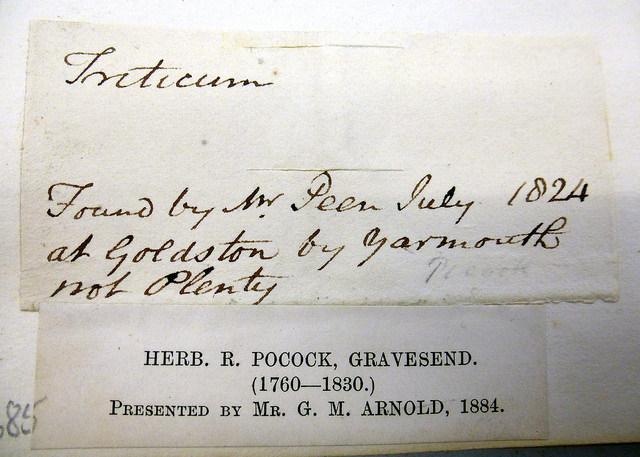 Triticum
Found by Mr. Peen July 1824
at Goldston by Yarmouth
Pocock
not Plenty
HERB. R. POCOCK, GRAVESEND.
(1760—1830.)
PRESENTED BY MR. G. M. ARNOLD, 1884.